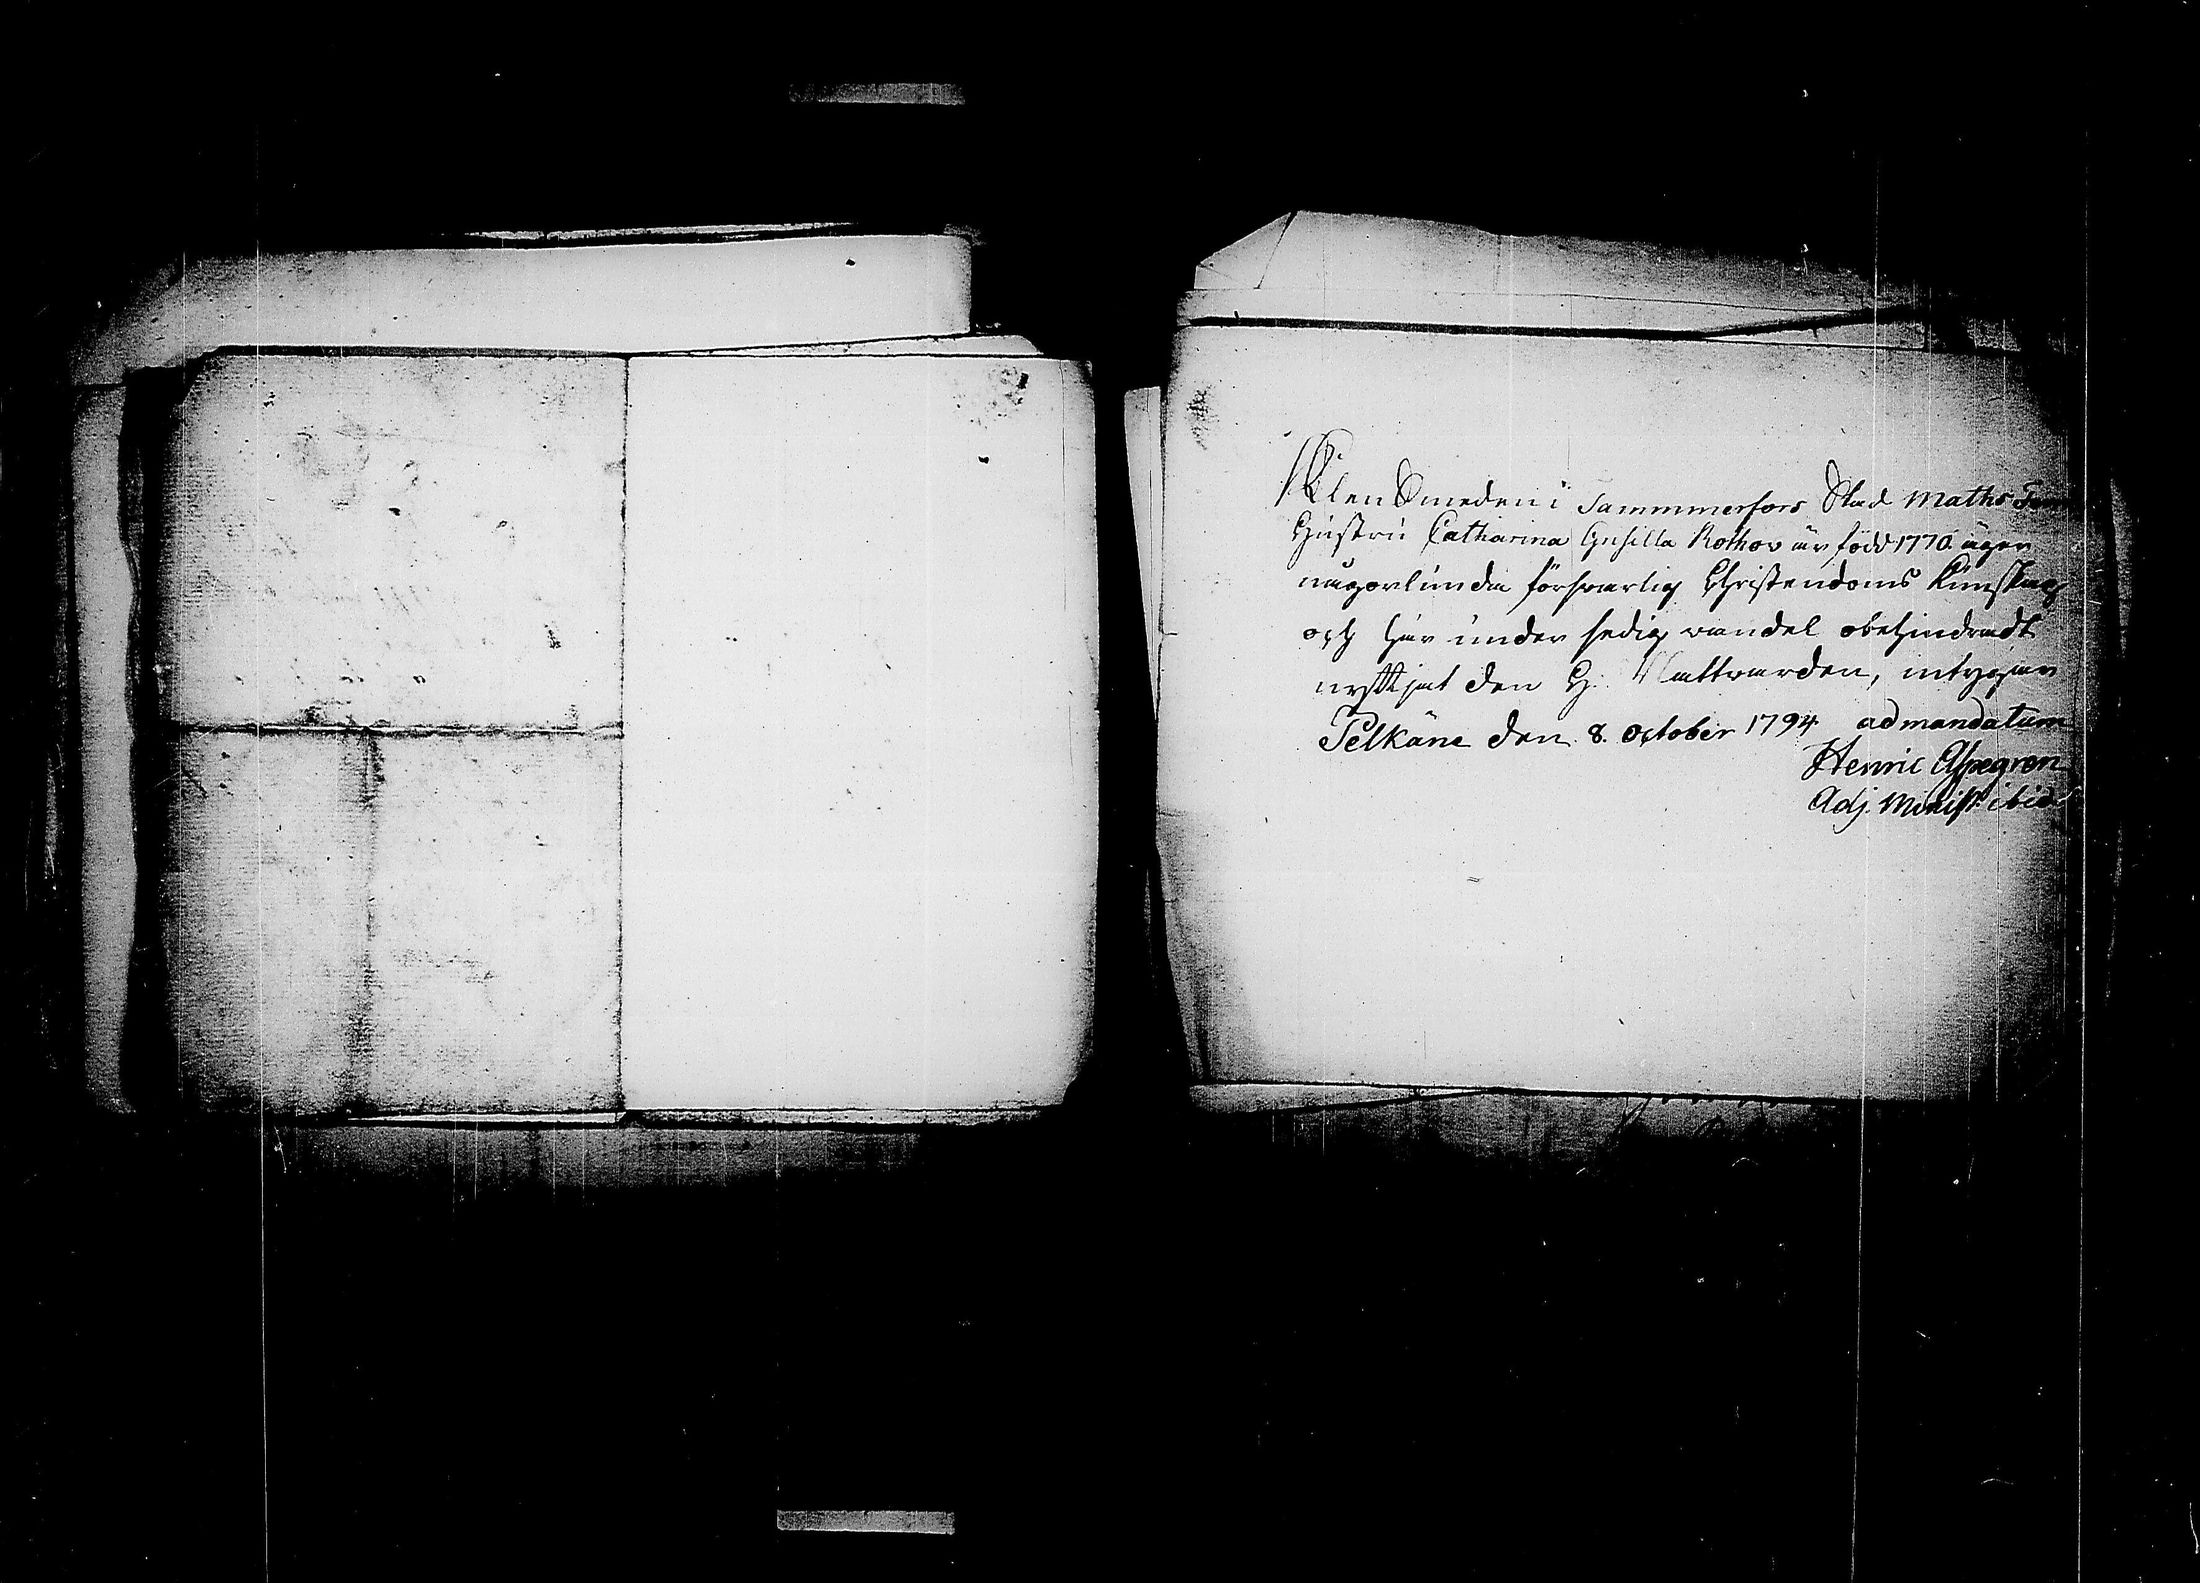 Klen Smeden i Tammmerfors Stad Maths
Hustru Catharina Gusilla Rothov är född 1770. äger
någorlunda försvarlig Christendoms kunskap
och har under sedig vandel obehindradt
nyttjat den H. Nattvarden, intygar
Pelkäne den 8. October 1794 ad mandatum
Henric Aspegren
Adj. Minist. ibid